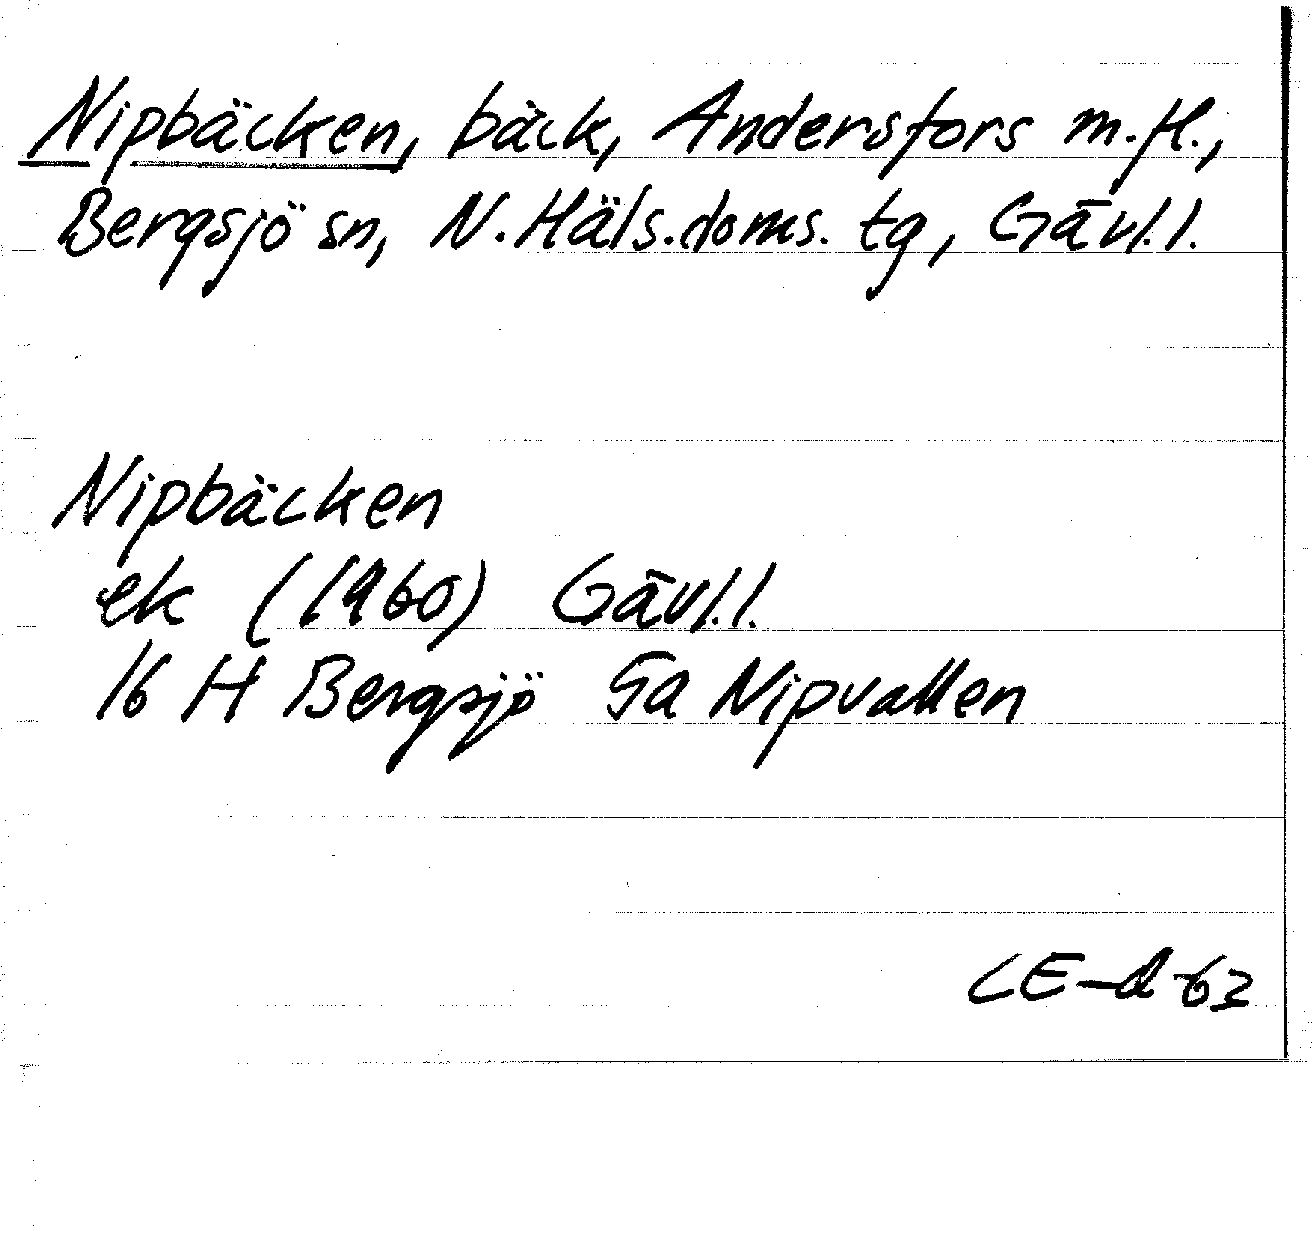 Nipbäcken, bäck, Andersfors m.fl.,
Bergsjö sn, N. Häls. doms. tg, Gävl.l.
Nipbäcken
ek (1960) Gävl.l.
16 H Bergsjö 5a Nipvallen
CE-d-63